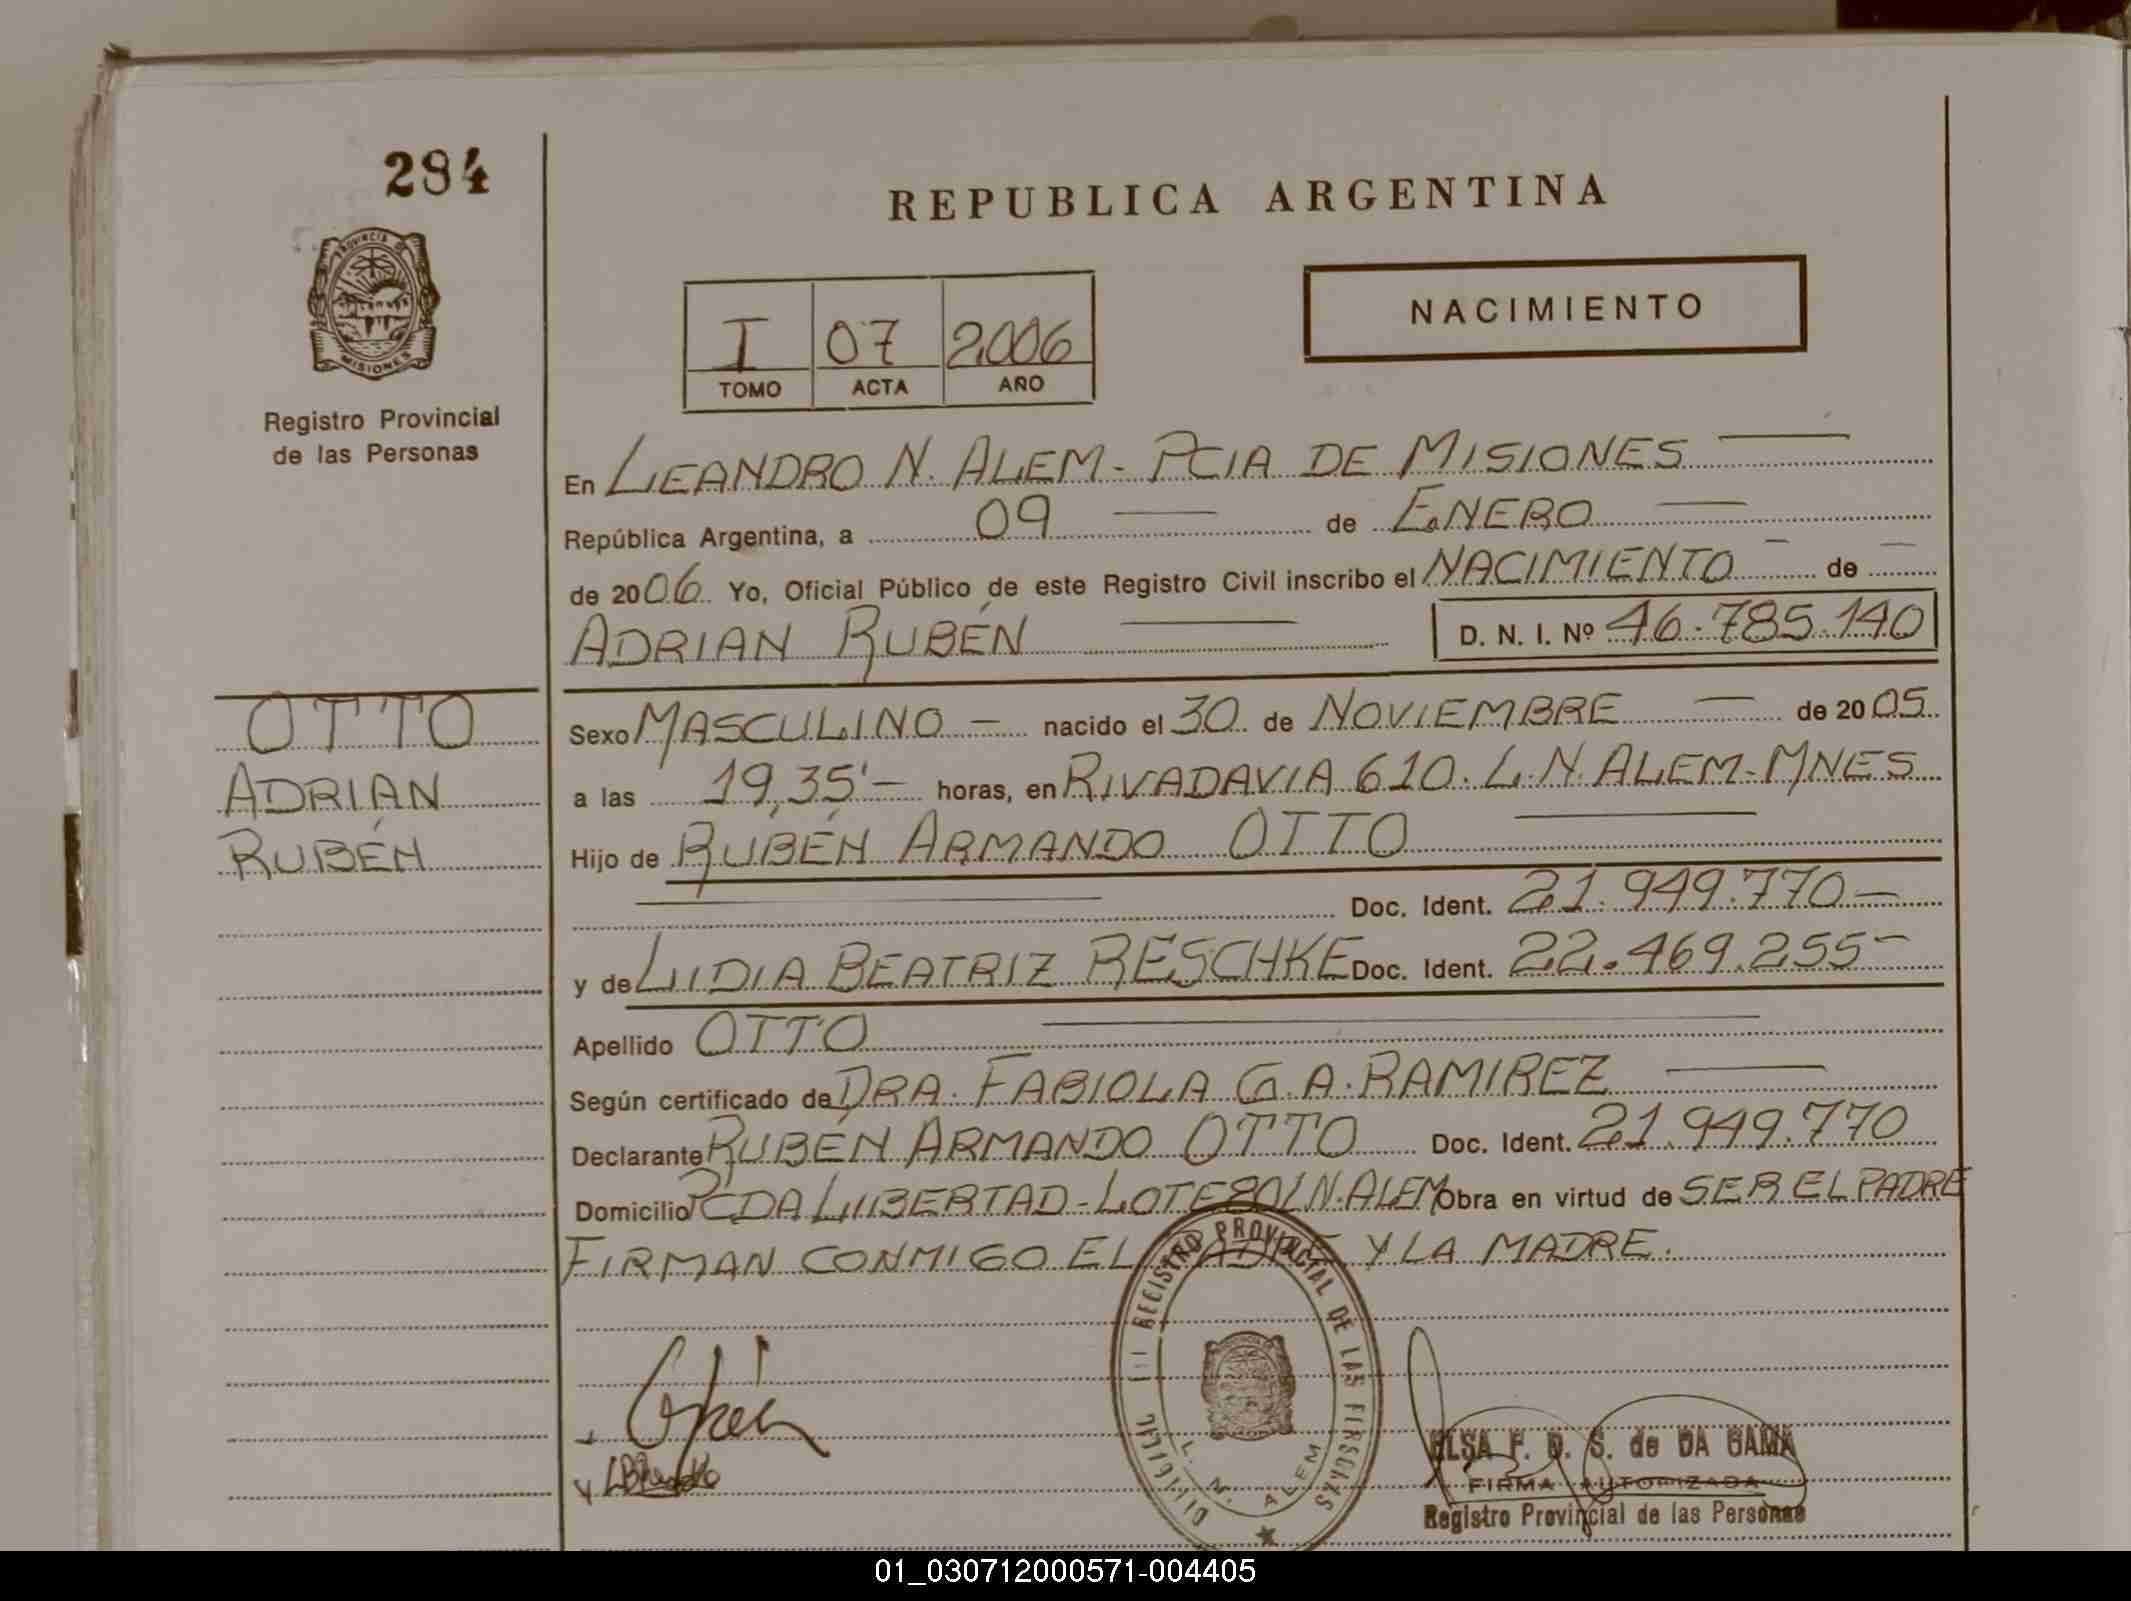 284
REPUBLICA ARGENTINA
PROVINCIA DE
MISIONES
Registro Provincial
de las Personas
I 07 2006
TOMO ACTA AÑO
NACIMIENTO
En LEANDRO N. ALEM - PCIA DE MISIONES
República Argentina, a 09 de ENERO
de 2006. Yo, Oficial Público de este Registro Civil inscribo el NACIMIENTO - de
ADRIAN RUBÉN D. N. I. Nº 46.785.140
OTTO
ADRIÁN
RUBÉN
Sexo MASCULINO - nacido el 30 de NOVIEMBRE de 2005
a las 19,35'- horas, en RIVADAVIA 610. L.N. ALEM-MNES
Hijo de RUBÉN ARMANDO OTTO
Doc. Ident. 21.949.770-
y de LIDIA BEATRIZ RESCHKE Doc. Ident. 22.469.255-
Apellido OTTO
Según certificado de DRA. FABIOLA G.A. RAMIREZ
Declarante RUBÉN ARMANDO OTTO Doc. Ident. 21.949.770
Domicilio PCDA LIBERTAD - LOTE 80 L.N. ALEM Obra en virtud de SER EL PADRE
FIRMAN CONMIGO EL PADRE Y LA MADRE.
REGISTRO PROVINCIAL DE LAS PERSONAS
L. N. ALEM
ELSA F. D. S. de DA GAMA
FIRMA AUTORIZADA
Registro Provincial de las Personas
01_030712000571-004405